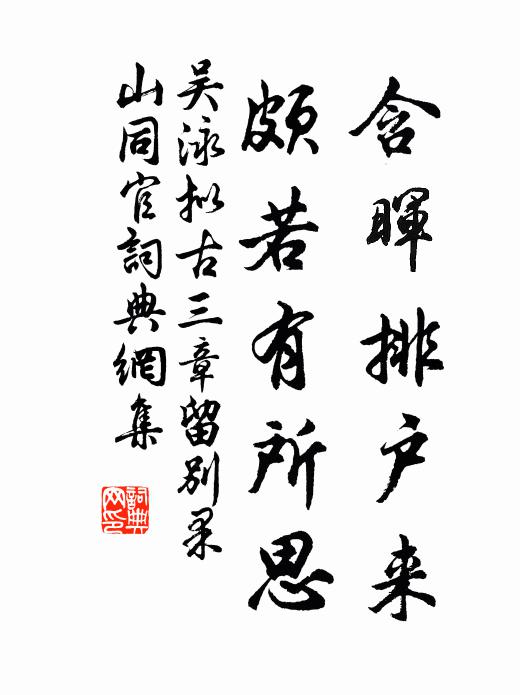 含暉排户来
頗若有所思
吴泳拟古三章留别果
山同官詞典網集
詞典网印